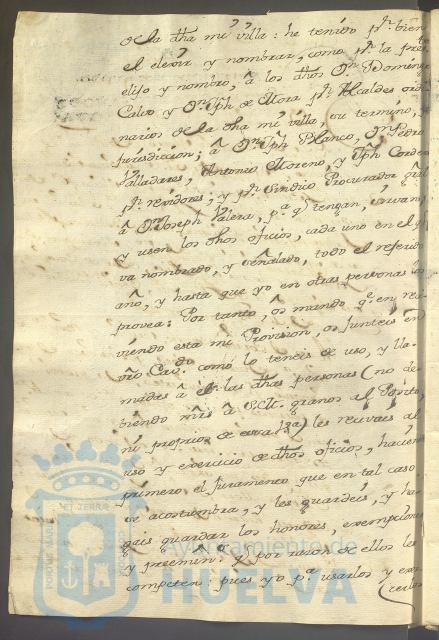 de la dha mi villa: he tenido pr. bien
el elexir y nombrar, como pr. la preste.
elijo y nombro, â los dhos Dn. Domingo
Calvo y Dn. Jph de Mora pr. Alcaldes ordi
narios de la dha mi villa, su termino, y
jurisdiccion; â Dn. Jph Blanco, Dn. Pedro
Valladares, Antonio Moreno, y Jph Cordero
pr. rexidores, y pr. Sindico Procurador gral
â Dn. Joseph Valera, pa. q. tengan, sirvan,
y usen los dhos oficios, cada uno en el q.
va nombrado, y señalado, todo el referido
año, y hasta que yo en otras personas los
provea: Por tanto, os mando qe. en reci
viendo esta mi Provision, os junteis en
vro Cavdo. como lo teneis de uso, y lla-
madas â él las dhas personas (no de
biendo mrs â S.M. granos al Posito,
ni propios de essa Va.) les recivais al
uso y exercicio de dhos oficios, haciendo
primero el juramento que en tal caso
se acostumbra, y les guardeis, y ha-
gais guardar los honores, exempciones
y preemins. q. por razon de ellos les
competen: pues yo pa. usarlos y exer
cerlos
ET TERRAE
Ayuntamiento de
HUELVA